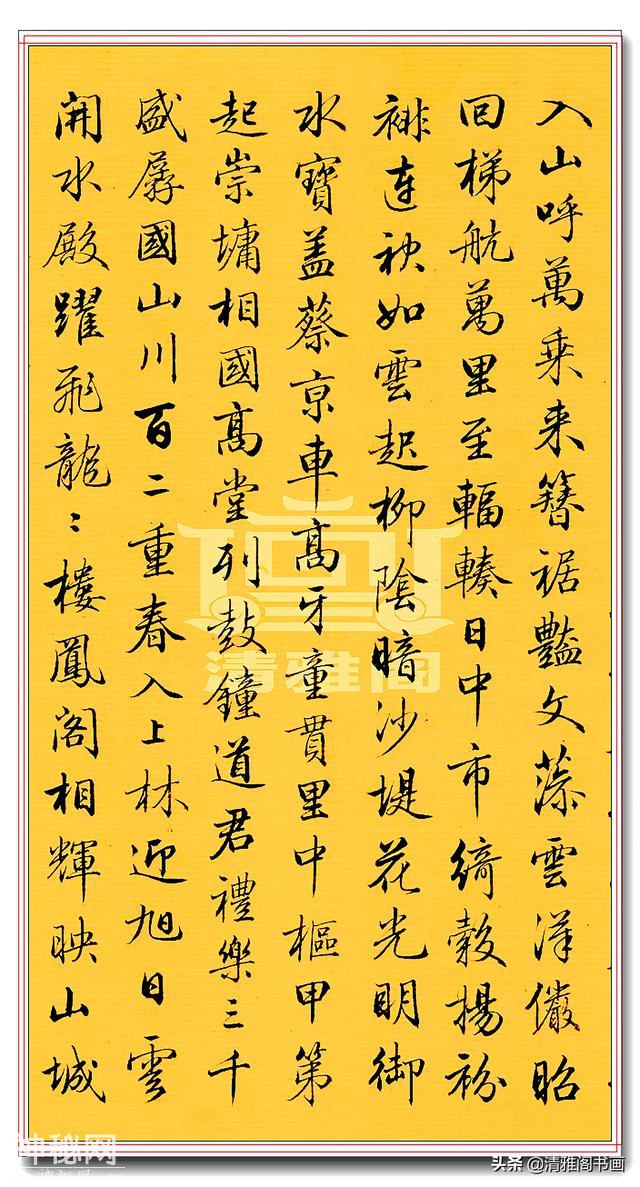 入山呼萬乘来簪裾豔文藻雲漢儼昭
回梯航萬里至輻輳日中市綺縠揚衯
裶連袂如雲起柳陰暗沙堤花光明御
水寶蓋蔡京車高牙童貫里中樞甲第
起崇墉相國高堂列鼓鐘道君禮樂三千
盛孱國山川百二重春入上林迎旭日雲
開水殿躍飛龍〻樓鳳閣相輝映山城
清雅阁
神秘网
头条 @清雅阁书画